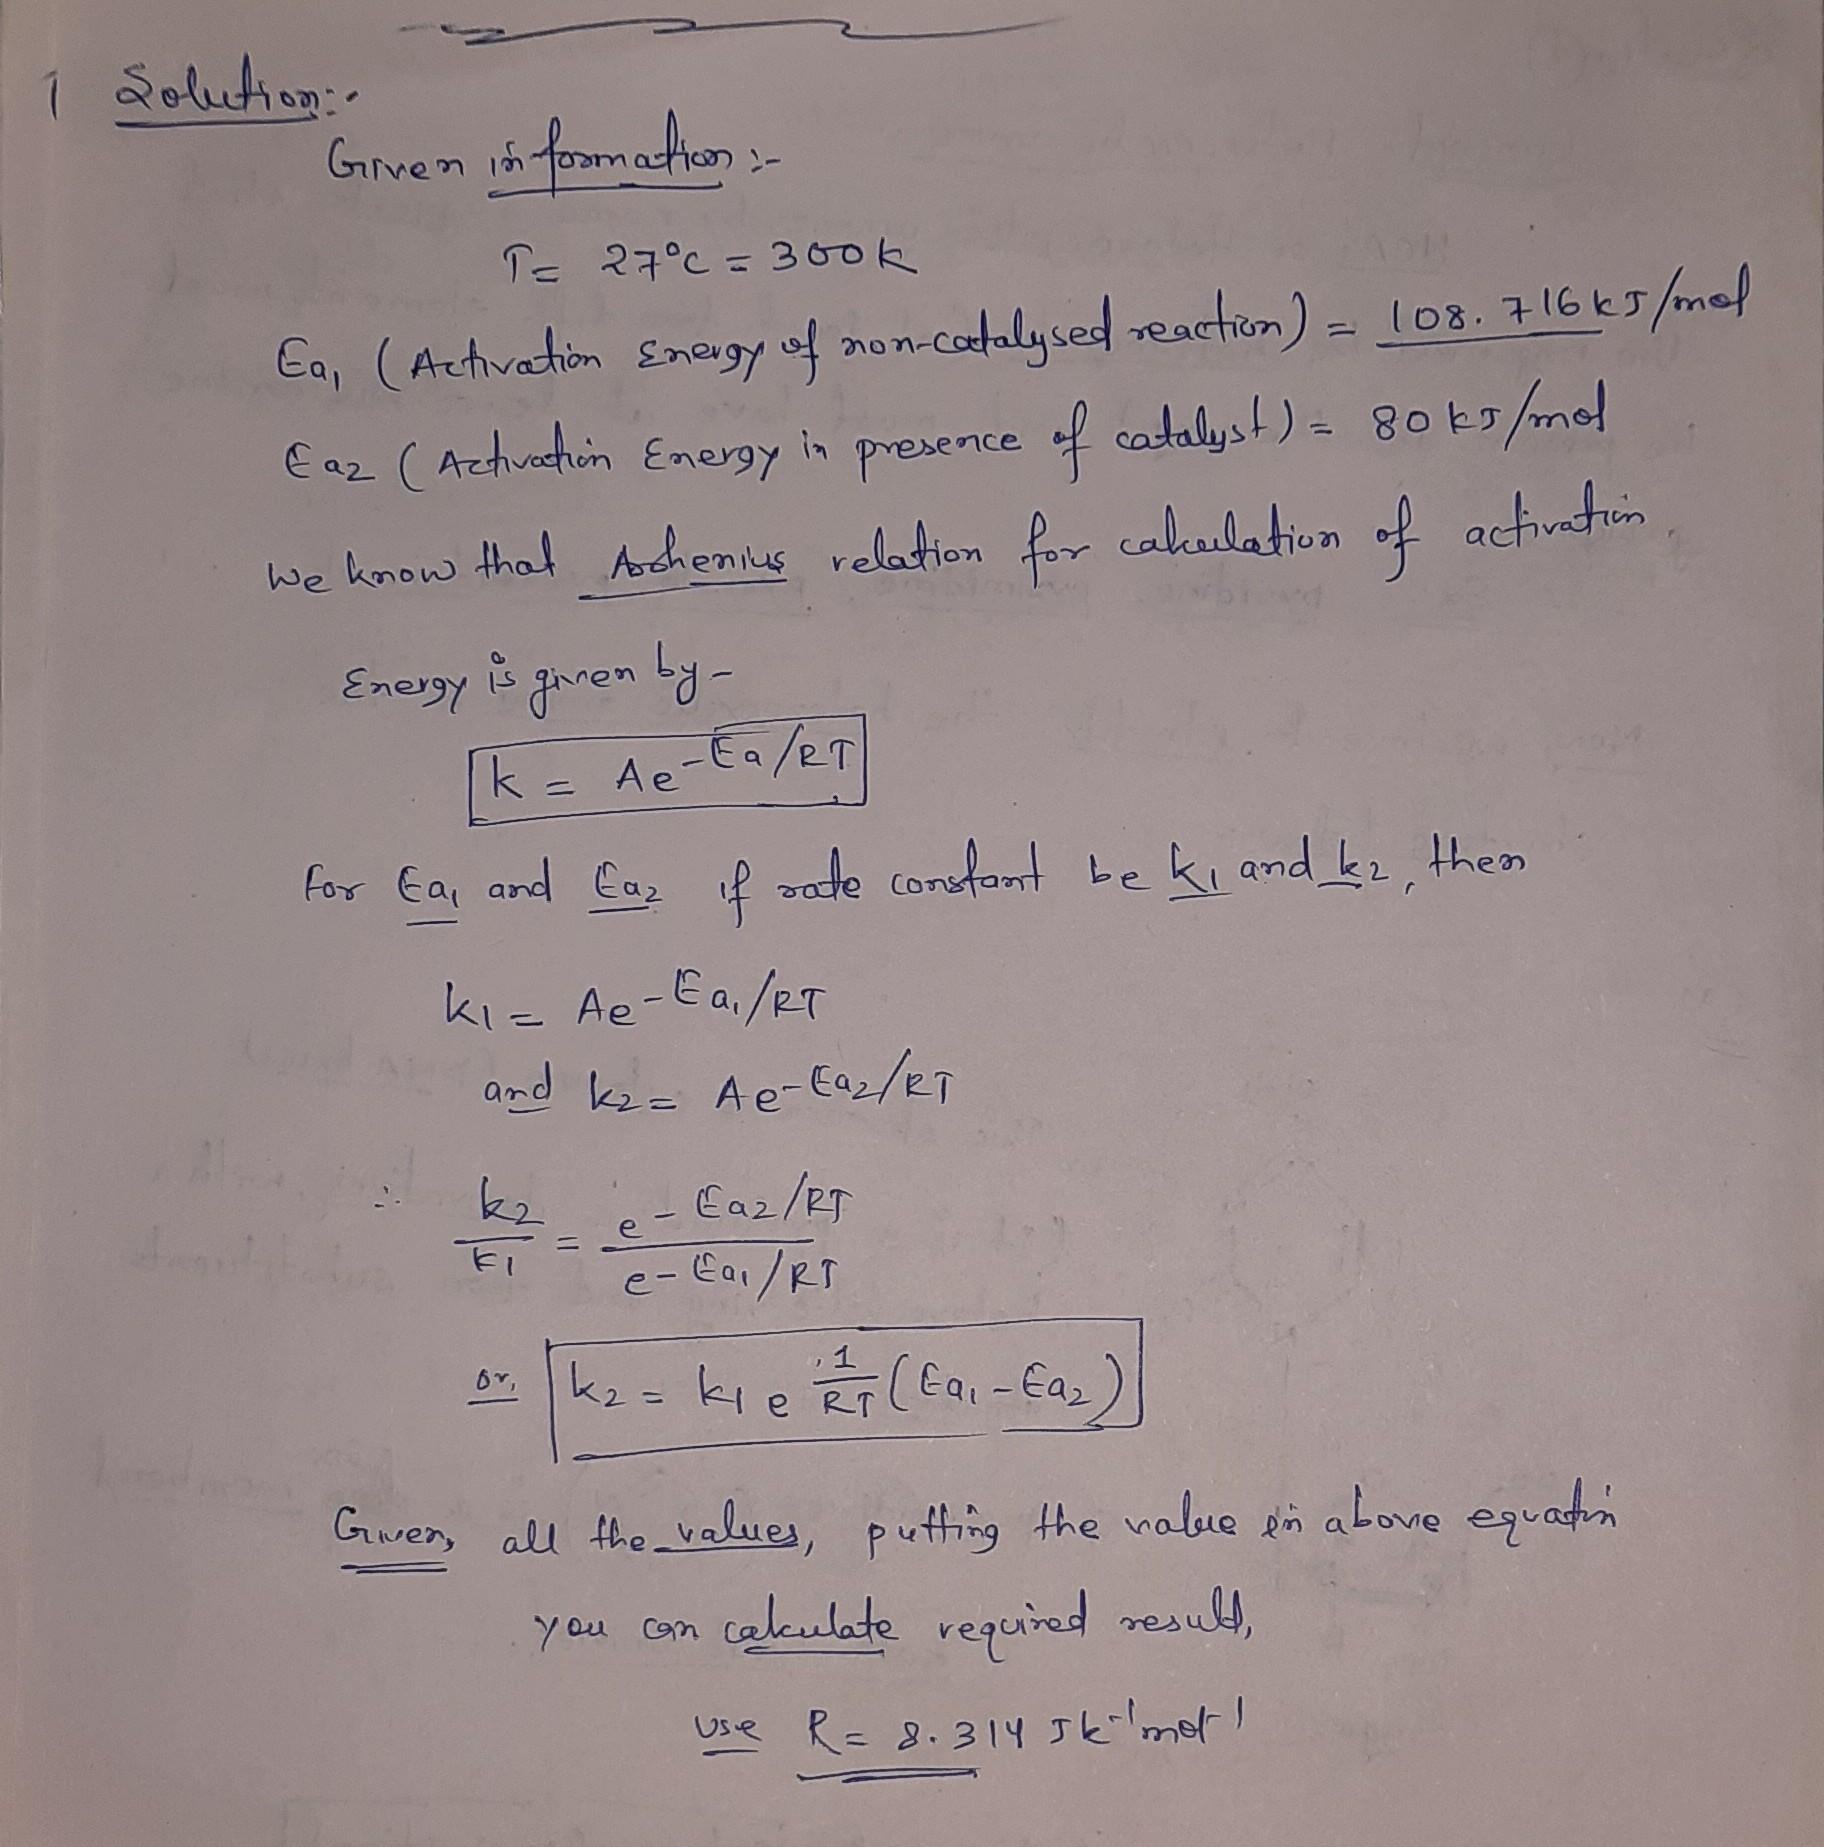 1 Solution:-
Given information :-
T = 27°C = 300K
Ea₁ (Activation Energy of non-catalysed reaction) = 108.716 kJ/mol
Ea₂ (Activation Energy in presence of catalyst) = 80 kJ/mol
We know that Arrhenius relation for calculation of activation
Energy is given by -
k = Ae^-Ea/RT
for Ea₁ and Ea₂ if rate constant be k₁ and k₂, then
k₁ = Ae^-Ea₁/RT
and k₂ = Ae^-Ea₂/RT
∴ k₂/k₁ = e^-Ea₂/RT / e^-Ea₁/RT
or, k₂ = k₁ e^1/RT (Ea₁ - Ea₂)
Given, all the values, putting the value in above equation
you can calculate required result,
use R = 8.314 JK⁻¹mol⁻¹